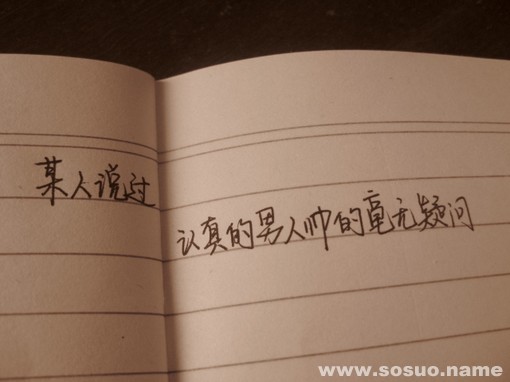 某人说过
认真的男人帅的毫无疑问
www.sosuo.name